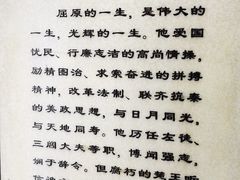 屈原的一生，是伟大的
一生，光辉的一生。他爱国
忧民、行廉志洁的高尚情操，
励精图治、求索奋进的拼搏
精神，改革法制、联齐抗秦
的美政思想，与日月同光，
与天地同寿。他历任左徒、
三闾大夫等职，博闻强志，
娴于辞令。但腐朽的楚王听
信谗